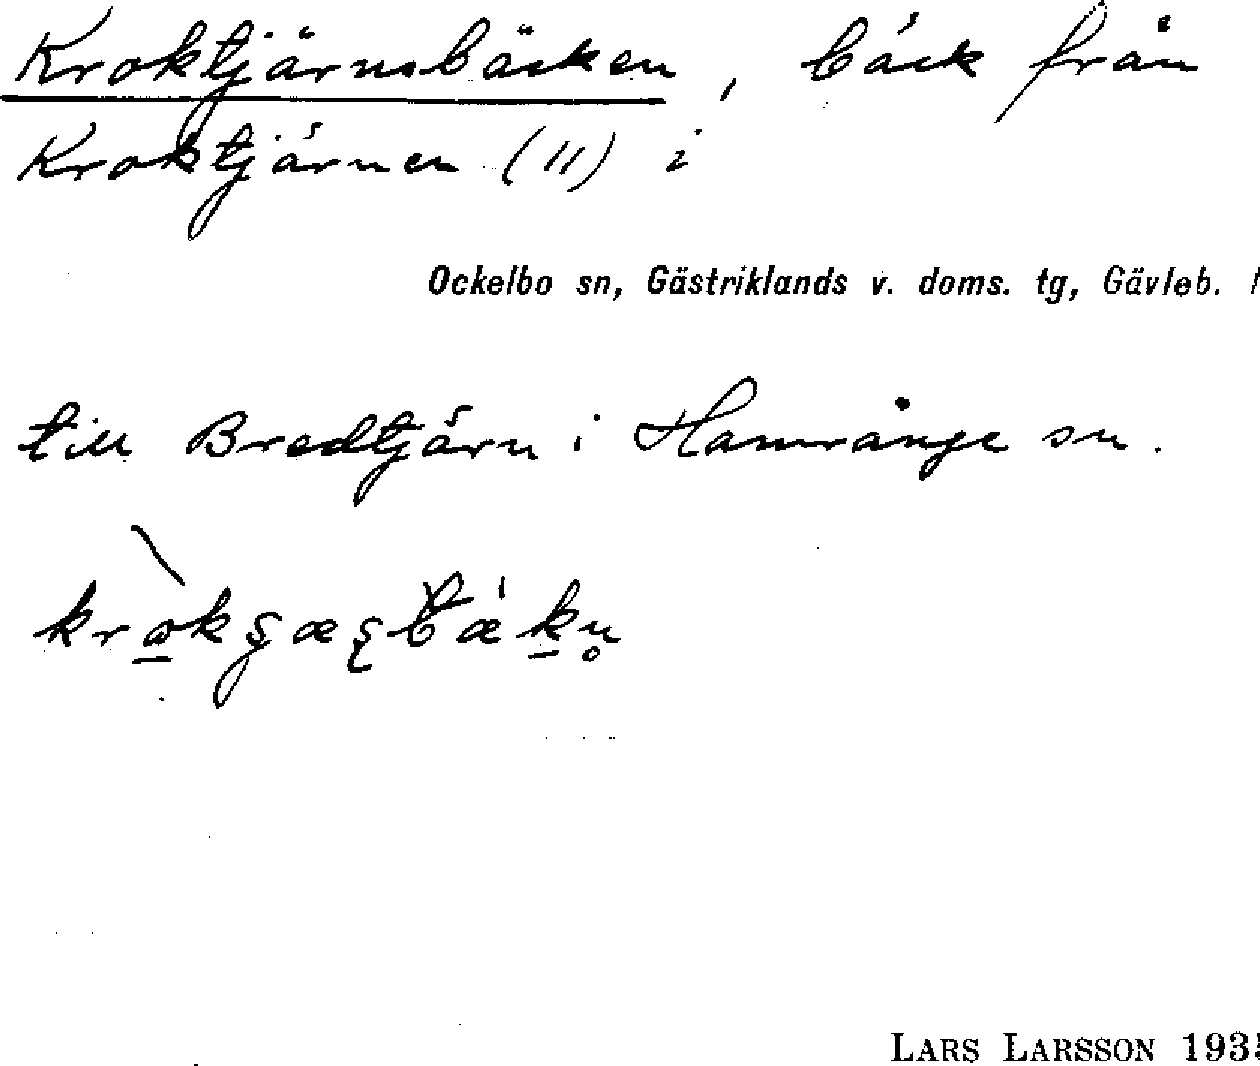 Kroktjärnsbäcken, bäck från
Kroktjärnen (11) i
Ockelbo sn, Gästriklands v. doms. tg, Gävleb.
till Bredtjärn i Hamrånge sn.
LARS LARSSON 193